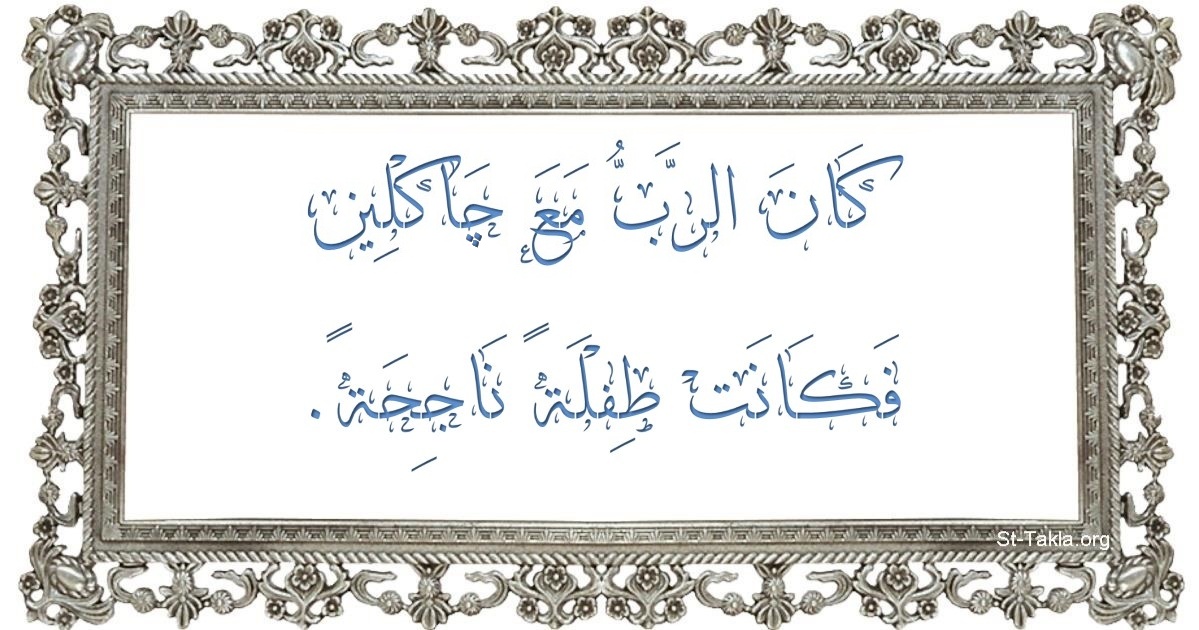 كَانَ الرَّبُّ مَعَ چَاكْلِين
فَكَانَت طِفْلَةً نَاجِحَةً.
St-Takla.org